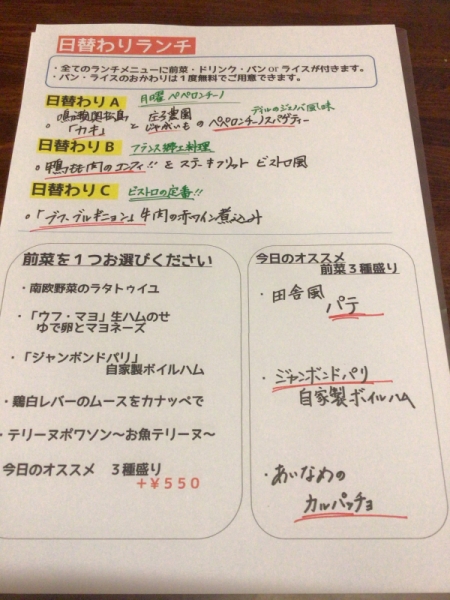 日替わりランチ
・全てのランチメニューに前菜・ドリンク・パンorライスが付きます。
・パン・ライスのおかわりは1度無料でご用意できます。
日替わりA 月曜 ペペロンチーノ
ディルのジェノバ風味
。鳴瀬奥松島「カキ」 庄子農園じゃがいもの ペペロンチーノスパゲティー
日替わりB フランス郷土料理
。鴨もも肉のコンフィ!! と ステーキフリット ビストロ風
日替わりC ビストロの定番!!
。「ブフ・ブルギニョン」牛肉の赤ワイン煮込み
前菜を1つお選びください
・南欧野菜のラタトゥイユ
・「ウフ・マヨ」生ハムのせ
ゆで卵とマヨネーズ
・「ジャンボンドパリ」
自家製ボイルハム
・鶏白レバーのムースをカナッペで
・テリーヌポワソン～お魚テリーヌ～
今日のオススメ 3種盛り
+¥550
今日のオススメ
前菜3種盛り
・田舎風
パテ
・ジャンボンドパリ
自家製ボイルハム
・あいなめの
カルパッチョ